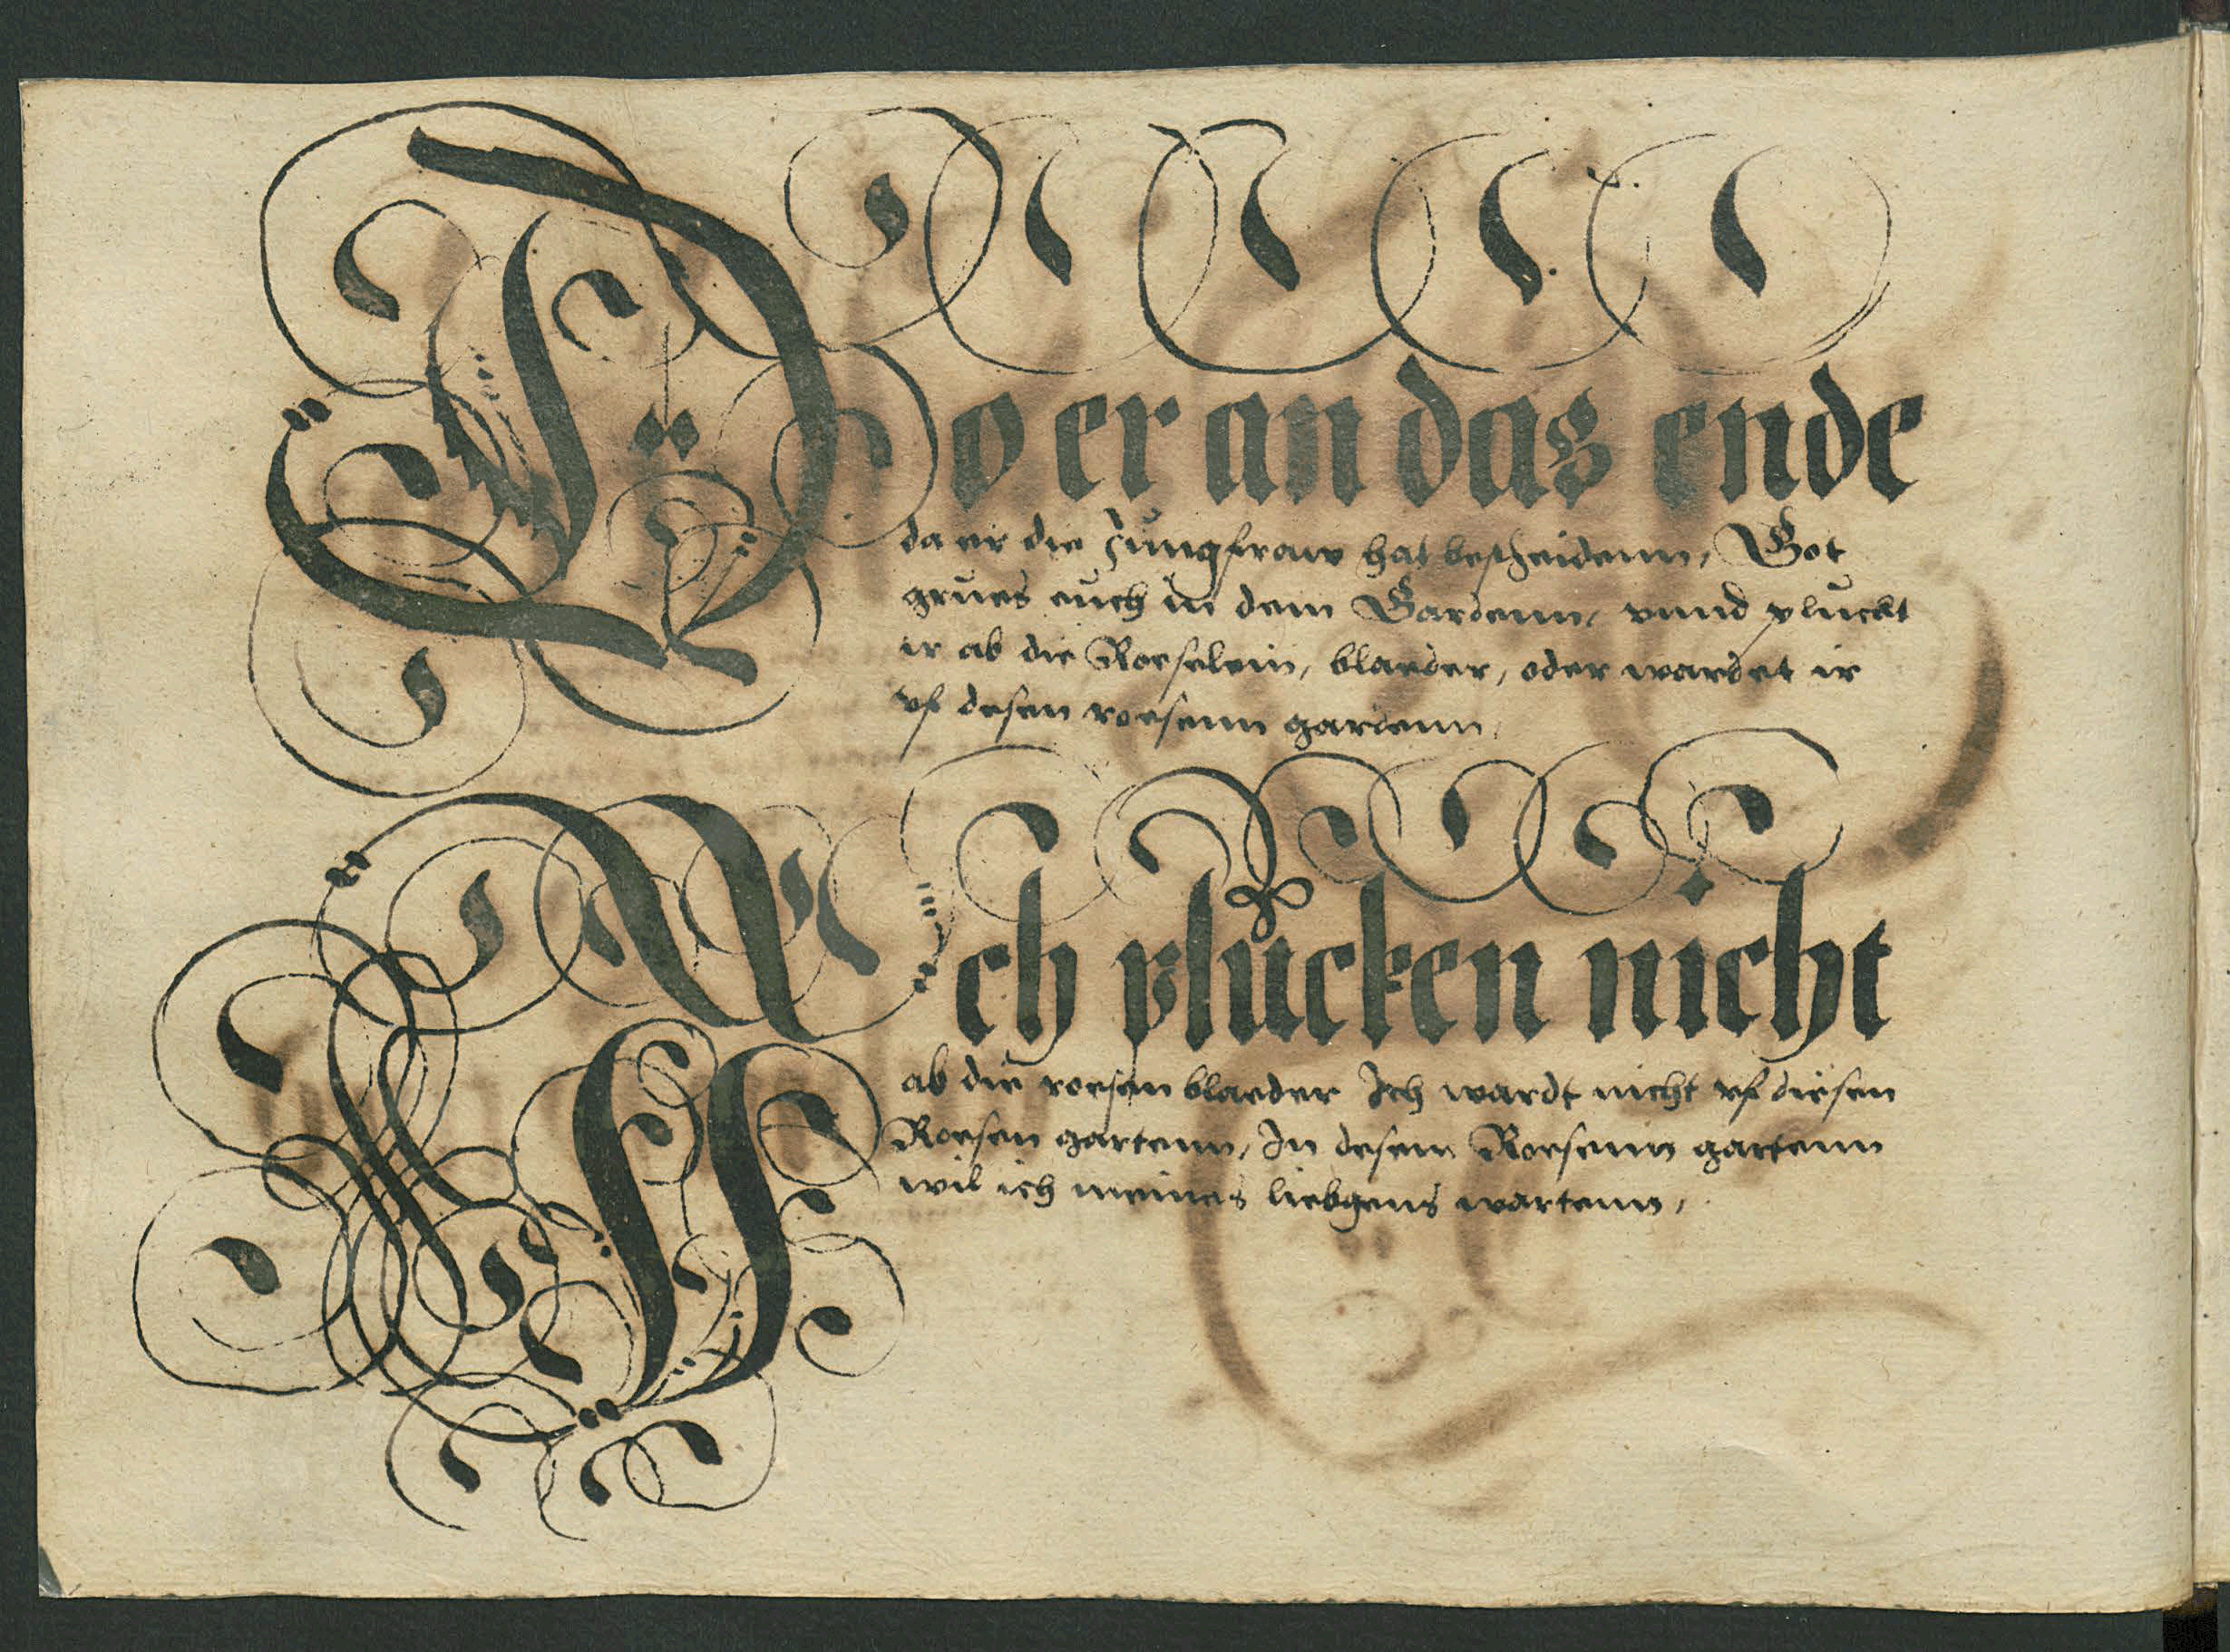 Do er an das ende
da er die Jungfraw hat bescheidenn, Got
grues euch in dem Gardenn, vnnd pluckt
ir ab die Roeselein, blaeder, oder wardet ir
vf desen roesenn gardenn,
Ich plucken nicht
ab die roesen blaeder Ich wardt nicht vf diesen
Roesen gartenn, In desem Roesenn gartenn
wil ich meines liebgens wartenn,